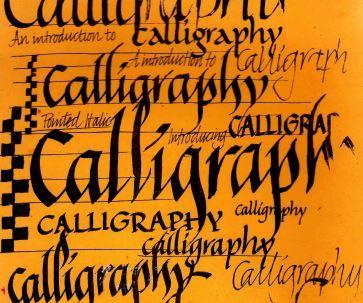 Calligraphy
An introduction to
Calligraphy
An introduction to
Calligraphy
Calligraphy
Pointed Italic
Introducing
CALLIGRAP
Calligraphy
CALLIGRAPHY
Calligraphy
Calligraphy
Calligraphy
Calligraphy